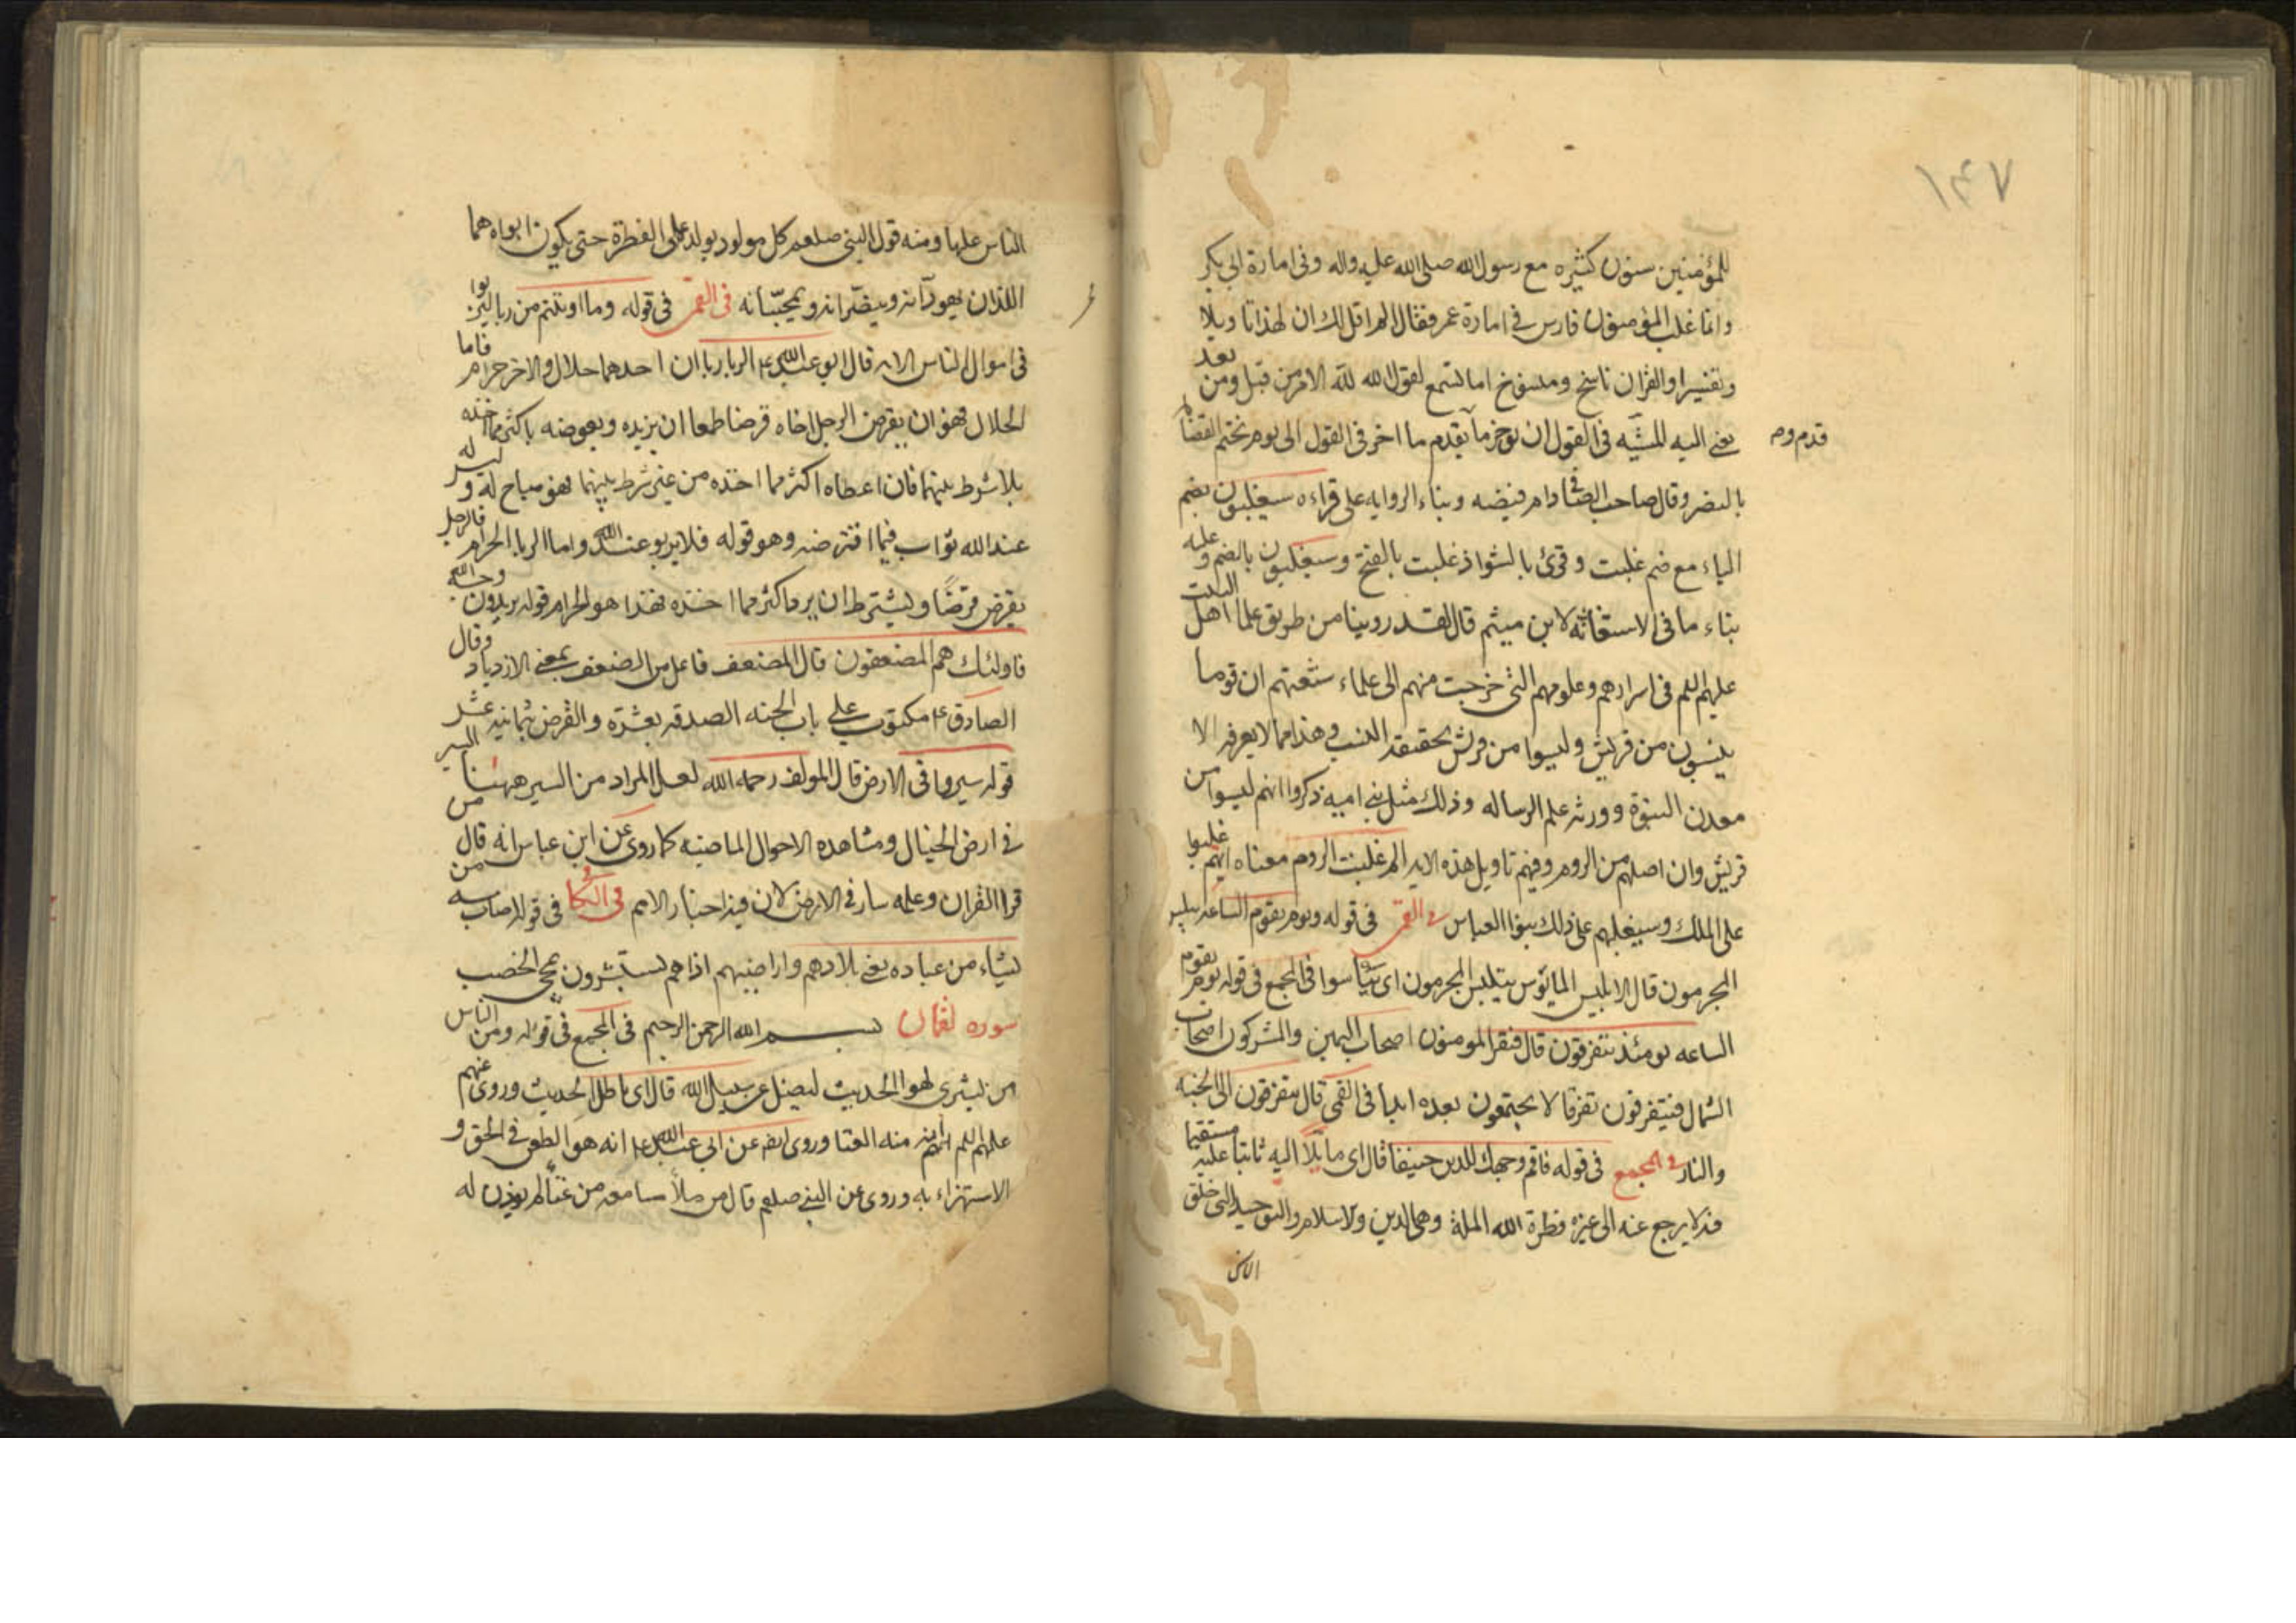 ١٤٧
للمؤمنين سنون كثيره مع رسول الله صلى الله عليه واله وفى امارة ابي بكر
وانما غلب المؤمنون فارس فى امارة عمر فقال الم اقل لك ان لهذا تاويلا
وتفسيرا والقران ناسخ ومنسوخ اما تسمع لقول الله لله الامر من قبل ومن بعد
يعني اليه المشيه فى القول ان يوخر ما يقدم ويقدم ما اخر فى القول الى يوم يحتم القضاء
قدم وم
بالنصر وقال صاحب الصافى ادام فيضه وبناء الروايه على قراءه سيغلبون بضم
الياء مع ضم غلبت وقرئ بالشواذ غلبت بالفتح وسيغلبون بالضم وعليه
بناء ما فى الاستغاثه لابن ميثم قال لقد روينا من طريق علما اهل البيت
عليهم السلم فى اسرارهم وعلومهم التى خرجت منهم الى علماء شيعتهم ان قوما
ينسبون من قريش وليسوا من قريش بحقيقه النسب وهذا مما لا يعرفه الا
معدن النبوة وورثه علم الرساله وذلك مثل بنى اميه ذكروا انهم ليسوا من
قريش وان اصلهم من الروم وفيهم تاويل هذه الايه الم غلبت الروم معناه انهم غلبوا
على الملك وسيغلبهم على ذلك بنوا العباس فى القمى فى قوله ويوم يقوم الساعه يبلس
المجرمون قال الابليس المايوس يبلس المجرمون اى يياسوا فى المجمع فى قوله يوم يقوم
الساعه يومئذ يتفرقون قال فيقر المومنون اصحاب اليمين والمشركون اصحاب
الشمال فيتفرقون تفرقا لا يجتمعون بعده ابدا فى القمى قال يتفرقون الى الجنه
والنار فى المجمع فى قوله فاقم وجهك للدين حنيفا قال اى مايلا اليه ثابتا عليه مستقيما
فيه لا يرجع عنه الى غيره فطرة الله الملة وهى الدين والاسلام والتوحيد التى خلق
الناس
الناس عليها ومنه قول النبى صلعم كل مولود يولد على الفطرة حتى يكون ابواه هما
اللذان يهودانه وينصرانه ويمجسانه فى القمى فى قوله وما اوتيتم من ربا ليربوا
فى اموال الناس الايه قال ابو عبد الله ع الربا رباان احدهما حلال والاخر حرام فاما
الحلال فهو ان يقرض الرجل اخاه قرضا طمعا ان يزيده ويعوضه باكثر مما اخذه
بلا شرط بينهما فان اعطاه اكثر مما اخذه من غير شرط بينهما فهو مباح له وليس له
عند الله ثواب فيما اقترضه وهو قوله فلا يربو عند الله واما الربا الحرام فالرجل
يقرض قرضًا ويشترط ان يرد اكثر مما اخذه فهذا هو الحرام قوله يريدون وجه الله
فاولئك هم المضعفون قال المضعف فاعل من الضعف بمعنى الازدياد وقال
الصادق ع مكتوب على باب الجنه الصدقه بعشرة والقرض بثمانيه عشر
قوله سيروا فى الارض قال المولف رحمه الله لعل المراد من السير ههنا السير
فى ارض الخيال ومشاهده الاحوال الماضيه كما روى عن ابن عباس انه قال من
قرا القران وعلمه سار فى الارض لان فيه اخبار الامم فى قوله اصاب به من
يشاء من عباده يعنى بلادهم واراضيهم اذا هم يستبشرون بمجى الخصب
سوره لقمان بسم الله الرحمن الرحيم فى المجمع فى قوله ومن الناس
من يشترى لهو الحديث ليضل عن سبيل الله قال اى باطل الحديث وروى عنهم
عليهم السلم ان منه الغنا وروى ايضا عن ابي عبد الله ع انه هو الطعن فى الحق و
الاستهزاء به وروى عن النبى صلعم قال من ملأ سامعه من غنا لم يوذن له